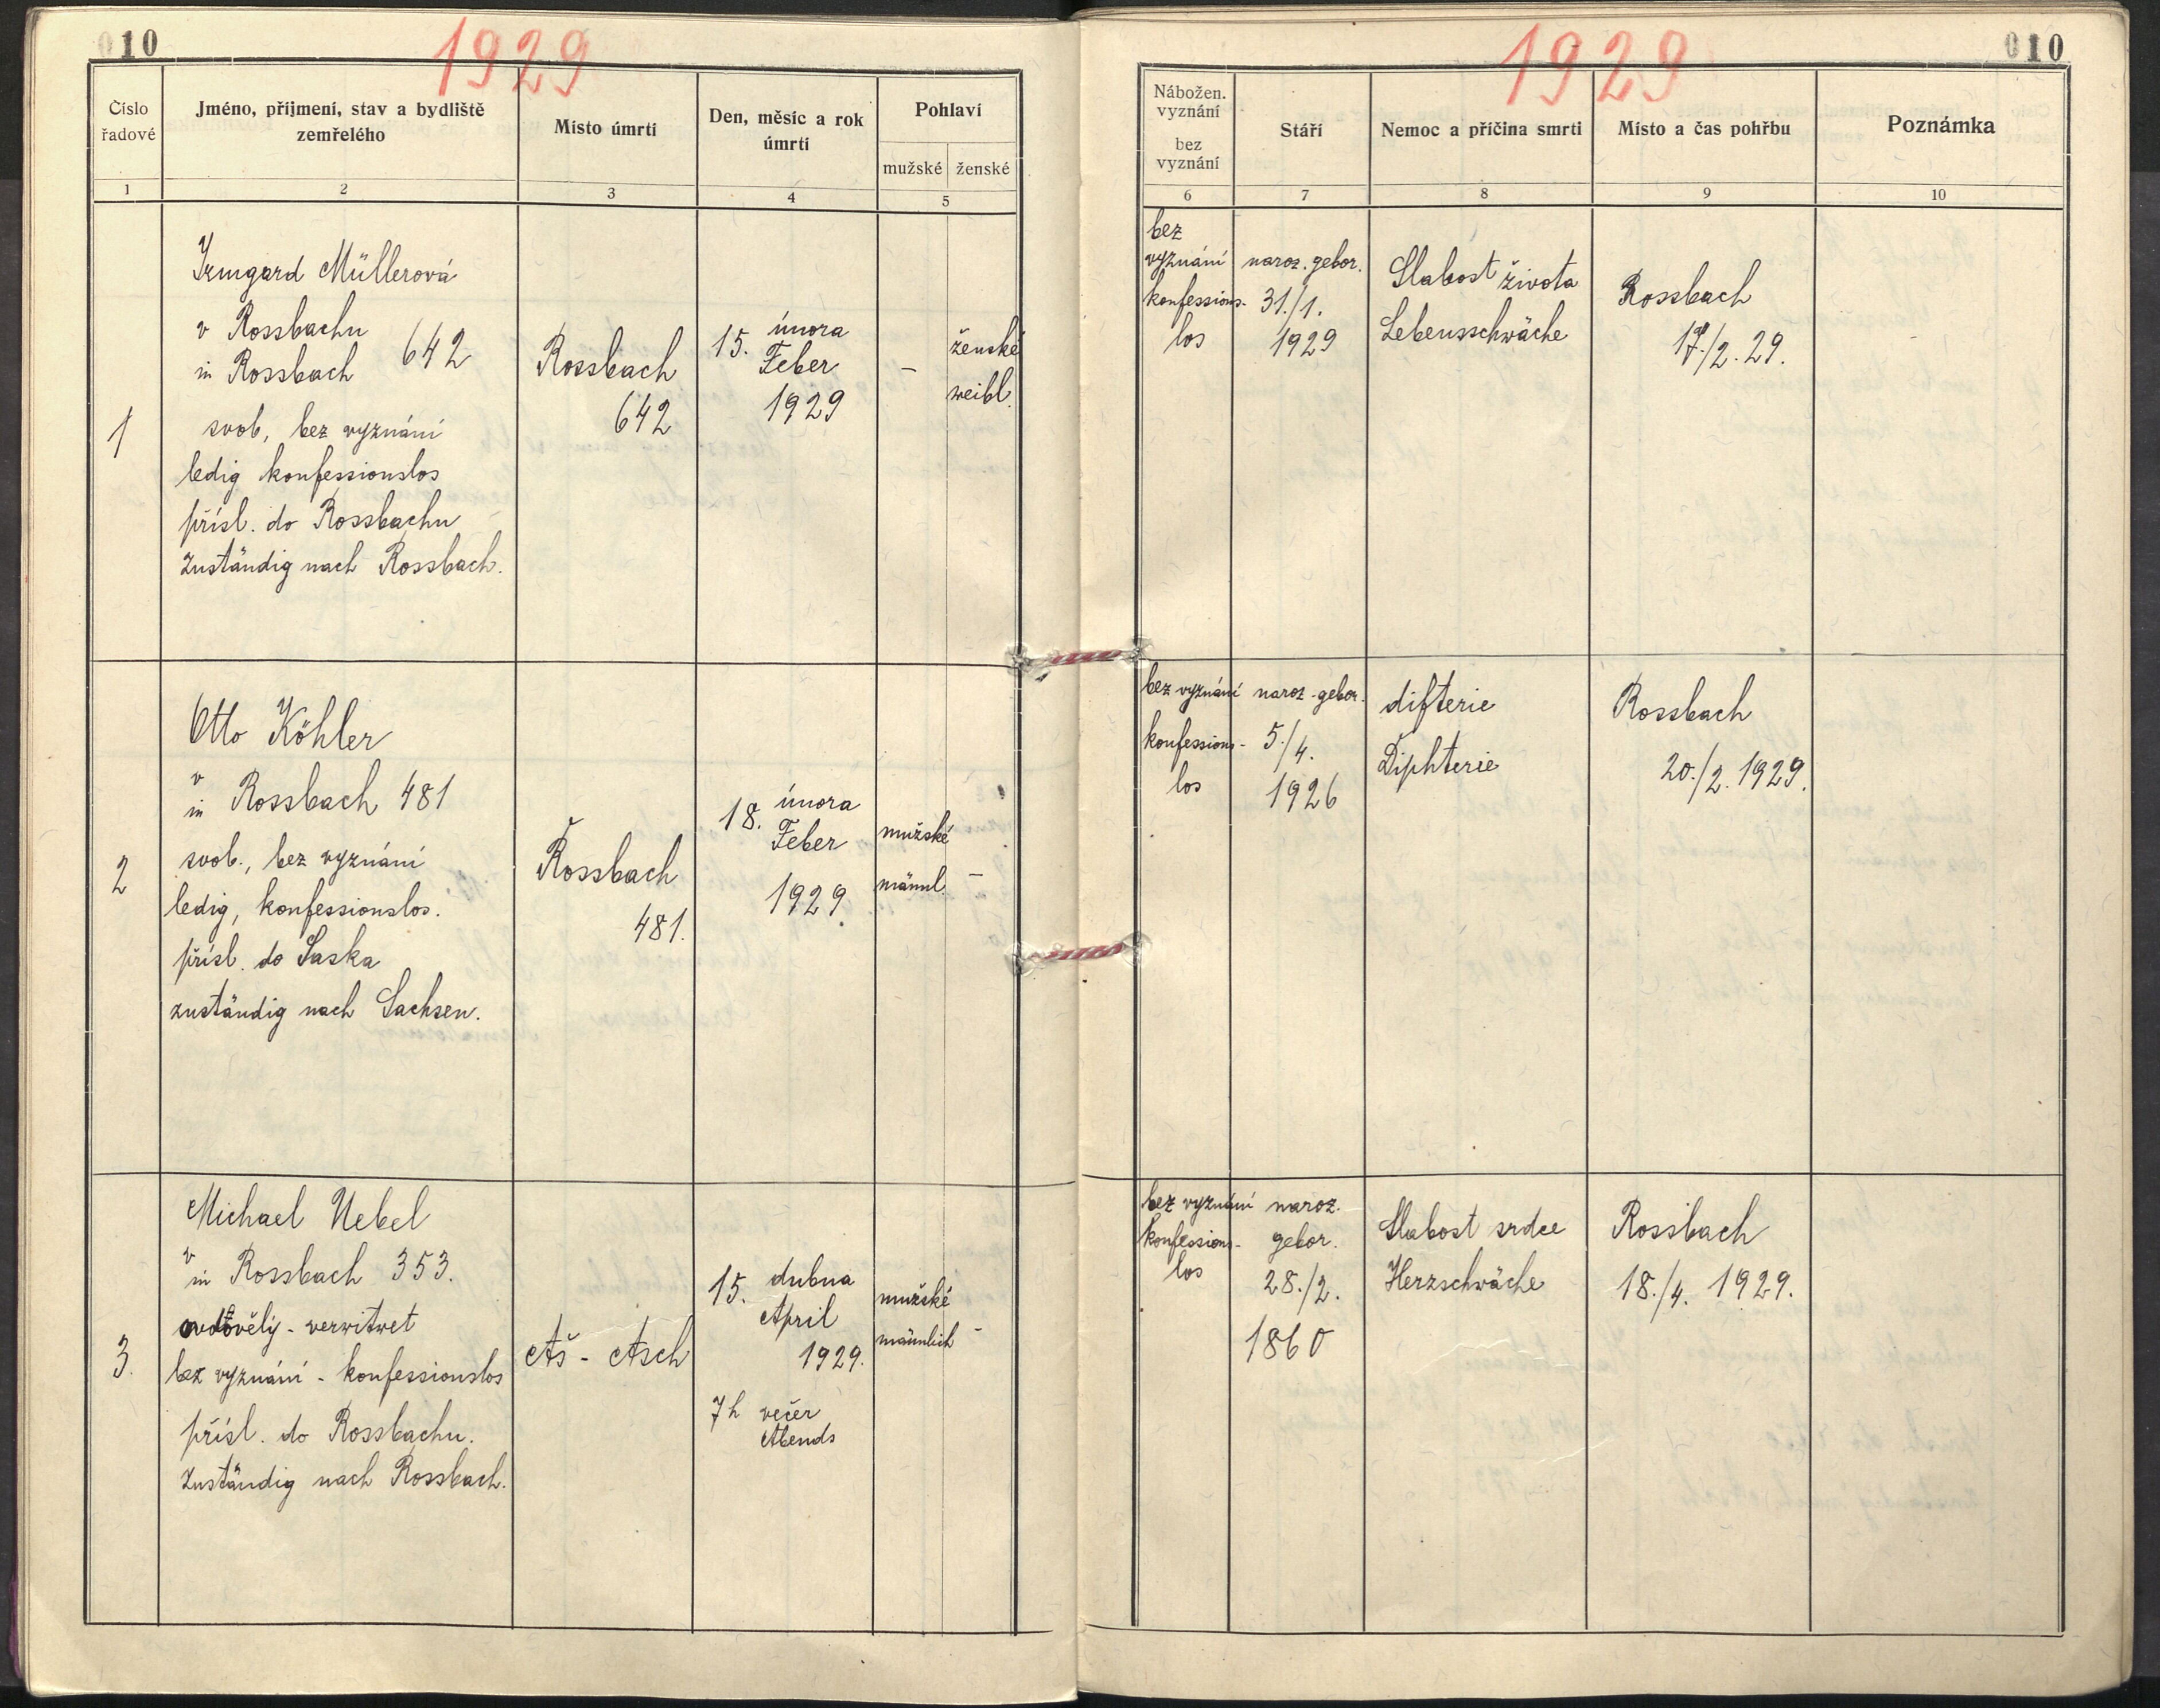 010
1929
Číslo
řadové
Jméno, příjmení, stav a bydliště
zemřelého
Místo úmrtí
Den, měsíc a rok
úmrtí
Pohlaví
mužské
ženské
1
2
3
4
5
1
Irmgard Müllerová
v Rossbachu
in Rossbach 642
svob, bez vyznání
ledig konfessionslos
přísl. do Rossbachu
zuständig nach Rossbach.
Rossbach
642
15. února
Feber
1929
–
ženské
weibl.
2
Otto Köhler
v
in Rossbach 481
svob., bez vyznání
ledig, konfessionslos.
přísl. do Saska
zuständig nach Sachsen.
Rossbach
481.
18. února
Feber
1929.
mužské
männl.
–
3.
Michael Uebel
v
in Rossbach 353.
ovdověly - verwitwet
bez vyznání - konfessionslos
přísl. do Rossbachu.
zuständig nach Rossbach.
Aš - Asch
15. dubna
April
1929.
7h večer
Abends
mužské
männlich
–
010
1929
Nábožen.
vyznání
bez
vyznání
Stáří
Nemoc a příčina smrti
Místo a čas pohřbu
Poznámka
6
7
8
9
10
bez
vyznání
konfessions-
los
naroz. gebor.
31./1.
1929
Slabost života
Lebensschwäche
Rossbach
17./2. 29.
bez vyznání
konfessions-
los
naroz - gebor.
5./4.
1926
difterie
Diphterie
Rossbach
20./2. 1929.
bez vyznání
konfession-
los
naroz.
gebor.
28./2.
1860
Slabost srdce
Herzschwäche
Rossbach
18./4. 1929.